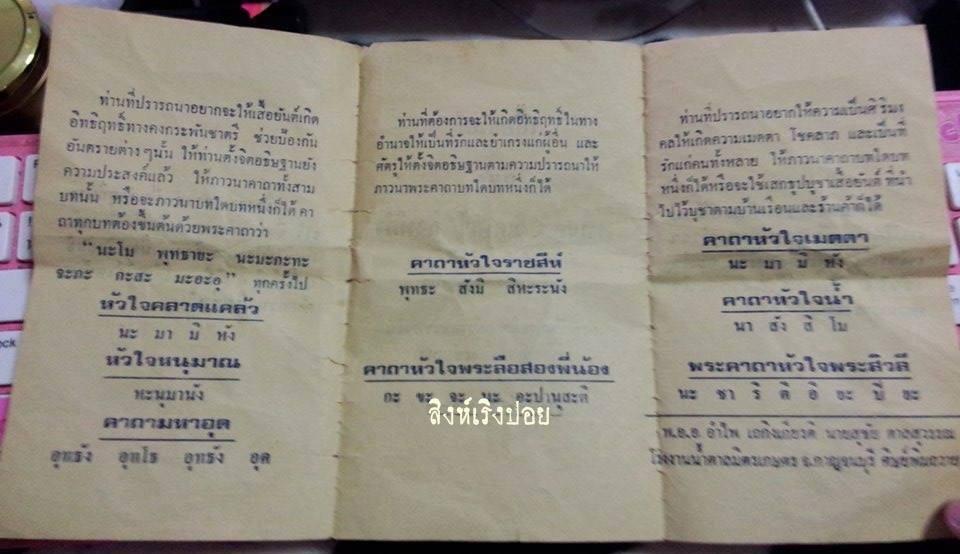 ท่านที่ปรารถนาอยากจะให้เสื้อยันต์เกิด
อิทธิฤทธิ์ทางคงกระพันชาตรี ช่วยป้องกัน
อันตรายต่าง ๆนั้น ให้ท่านตั้งจิตอธิษฐานยัง
ความประสงค์แล้ว ให้ภาวนาคาถาทั้งสาม
บทนั้น หรือจะภาวนาบทใดบทหนึ่งก็ได้ คา
ถาทุกบทต้องขึ้นต้นด้วยพระคาถาว่า
"นะโม พุทธายะ นะมะภะทะ
จะภะ กะสะ มะอะอุ" ทุกครั้งไป
หัวใจคลาดแคล้ว
นะ มา มิ หัง
หัวใจหนุมาณ
หะนุมานัง
คาถามหาอุด
อุทธัง อุทโธ อุทธัง อุด
ท่านที่ต้องการจะให้เกิดอิทธิฤทธิ์ในทาง
อำนาจให้เป็นที่รักและยำเกรงแก่ผู้อื่น และ
ศัตรูให้ตั้งจิตอธิษฐานตามความปรารถนาให้
ภาวนาพระคาถาบทใดบทหนึ่งก็ได้
คาถาหัวใจราชสีห์
พุทธะ สังมิ สิหะระนัง
คาถาหัวใจพระลือสองพี่น้อง
กะ ขะ จะ
สิงห์เริงปอย
ท่านที่ปรารถนาอยากให้ความเป็นศิริมง
คลให้เกิดความเมตตา โชคลาภ และเป็นที่
รักแก่คนทั้งหลาย ให้ภาวนาคาถาบทใดบท
หนึ่งก็ได้หรือจะใช้เสกธูปบูชาเสื้อยันต์ ที่นำ
ไปไว้บูชาตามบ้านเรือนและร้านค้าก็ได้
คาถาหัวใจเมตตา
นะ มา มิ หัง
คาถาหัวใจน้ำ
นา สัง สิ โม
พระคาถาหัวใจพระสิวลี
นะ ชา ริ ติ อิ
พ.อ.อ. อำไพ เถกิงเกียรติ นายสุชัย ตาลสุวรรณ
โรงงานน้ำตาลมิตรเกษตร จ.กาญจนบุรี